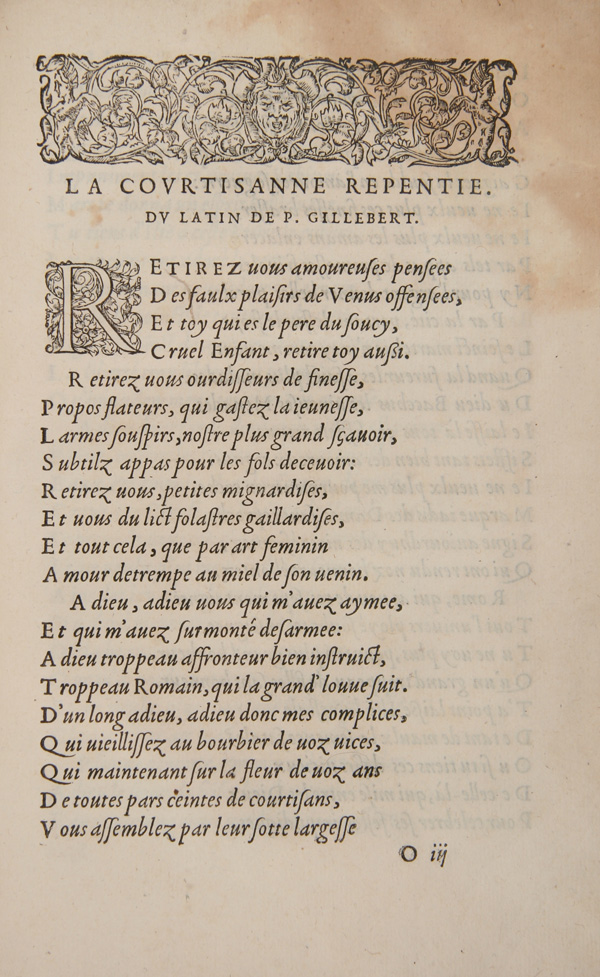 LA COVRTISANNE REPENTIE.
DV LATIN DE P. GILLEBERT.
RETIREZ uous amoureuſes penſees
Des faulx plaiſirs de Venus offenſees,
Et toy qui es le pere du ſoucy,
Cruel Enfant, retire toy außi.
Retirez uous ourdiſſeurs de fineſſe,
Propos flateurs, qui gaſtez la ieuneſſe,
Larmes ſouſpirs, noſtre plus grand ſçauoir,
Subtilz appas pour les fols deceuoir:
Retirez uous, petites mignardiſes,
Et uous du lict folaſtres gaillardiſes,
Et tout cela, que par art feminin
Amour detrempe au miel de ſon uenin.
Adieu, adieu uous qui m'auez aymee,
Et qui m'auez ſurmonté deſarmee:
Adieu troppeau affronteur bien inſtruict,
Troppeau Romain, qui la grand' louue ſuit.
D'un long adieu, adieu donc mes complices,
Qui uieilliſſez au bourbier de uoz uices,
Qui maintenant ſur la fleur de uoz ans
De toutes pars ceintes de courtiſans,
Vous aſſemblez par leur ſotte largeſſe
O iij